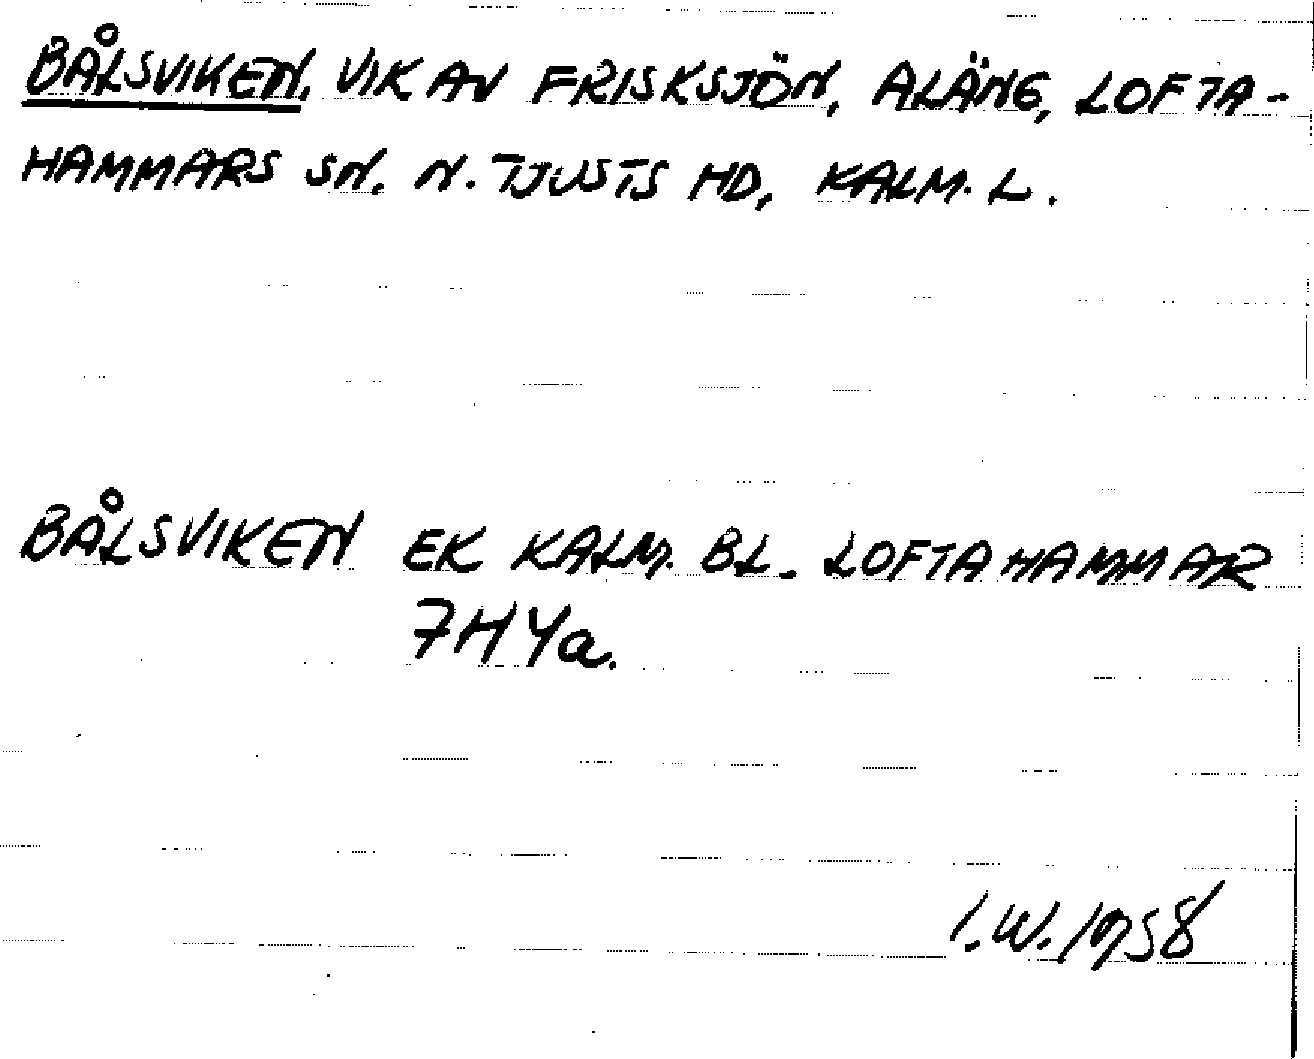 BÅLSVIKEN, VIK AV FRISKSJÖN, ALÄNG, LOFTA-
HAMMARS SN. N. TJUSTS HD, KALM. L.
BÅLSVIKEN EK KALM. BL. LOFTAHAMMAR
7H4a.
I.W. 1958